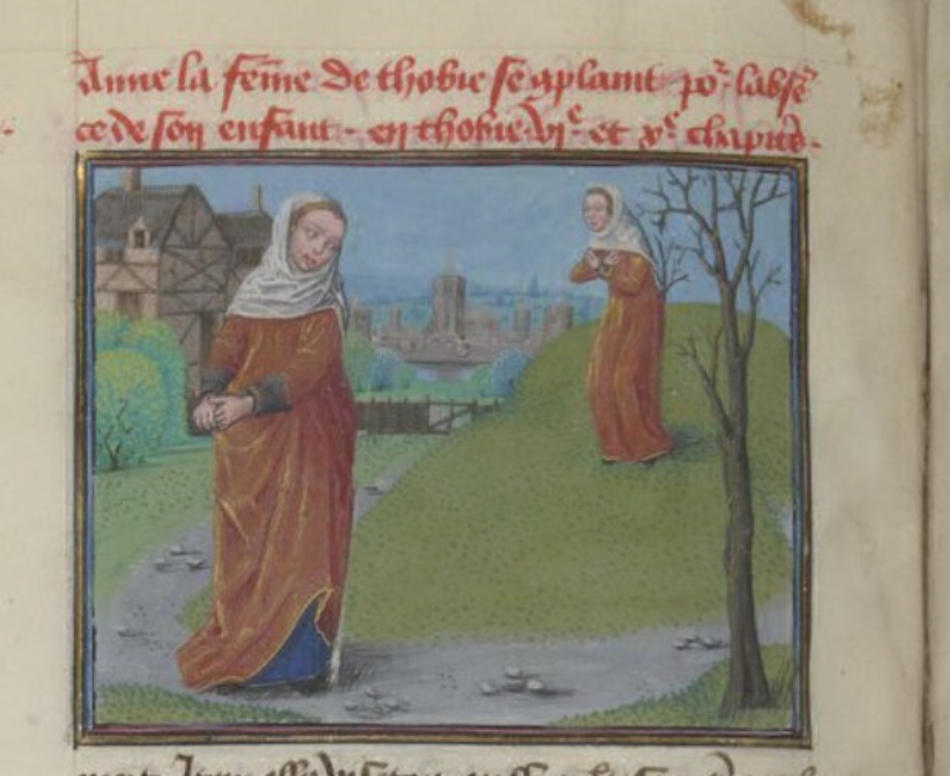 Anne la fẽme de thobie se ꝯplaint po᷑ labsẽ
ce de son enfant · en thobie · vᵉ et xᵉ chapitres ·